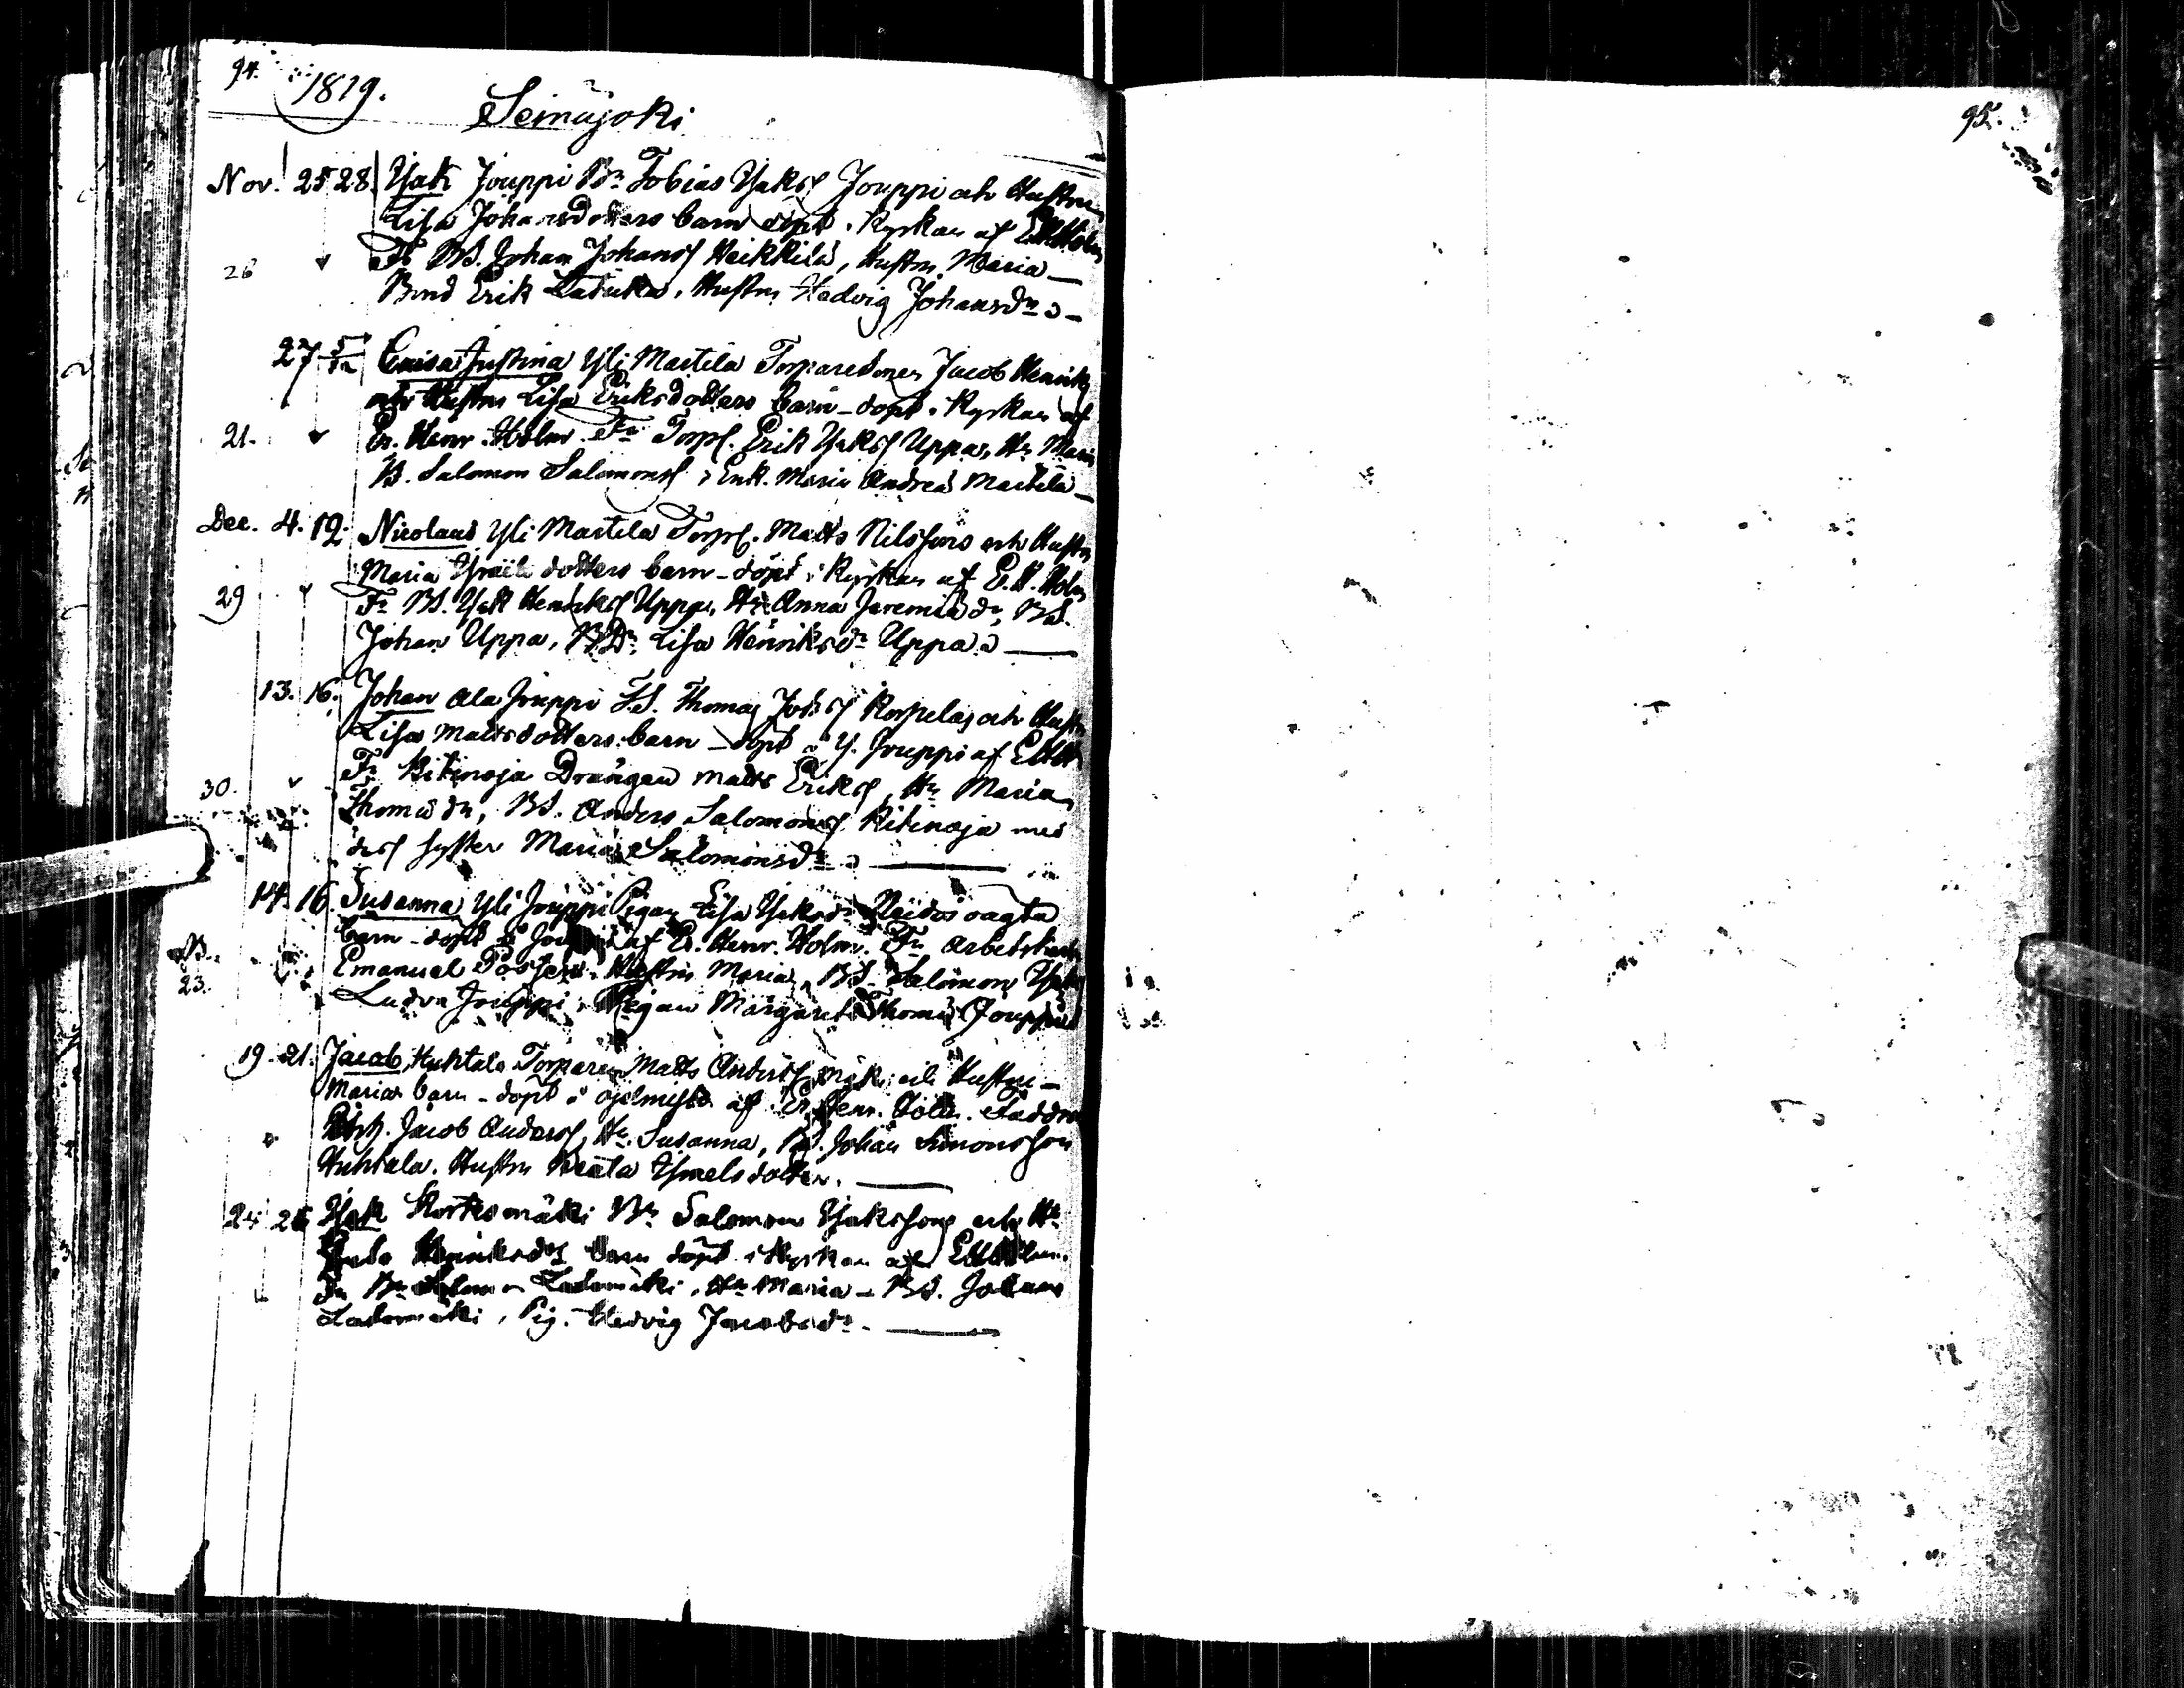 94.
1819.
Seinäjoki
95.
Nov. 25 28 Isak Jouppi Bn Tobias Isaks Jouppi och Hustrun
Lisa Johansdotters barn döpt i Kyrkan af E. H. Holm
26 Fr BS. Johan Johans Heikkilä, Hustru Maria —
Bond Erik, Hustru Hedvig Johansdr
27 5/12 Caisa Justina Yli Martila Torparedomen Jacob Henriks
och Hustrus Lisa Eriksdotters barn – döpt i Kyrkan af
21. Er. Henr. Holm. Fr Torp. Erik Isaks Uppa, Hu Maria
B. Salomon Salomons, Enk. Maria Andreæ Martila —
Dec. 4. 12. Nicolaus Yli Martila Torp. Matts Nilssons och Hustru
Maria Israels dotters barn – döpt i Kyrkan af E. H. Holm
29 Fr BS. Isak Henriks Uppa, Hu Anna Jeremiædr, BS.
Johan Uppa, BDr. Lisa Henriksdr Uppa —
13. 16. Johan Ala Jouppi Thomas Korpela och Hustru
Lisa Mattsdotters barn – döpt å Y. Jouppi af E H H
30. Fr Ritinoja Drängen Matts Eriks, Hu Maria
Thomædr, BS. Anders Salomons Ritinoja med
dess syster Maria Salomonsdr —
14. 16. Susanna Yli Jouppi Pigan Lisa Isaksdr oägta
barn – döpt å af Er. Henr. Holm. Fr Arbetskarl
23. Emanuel Hustru Maria, BS. Salomon Isaks
Jouppi, Pigan Margaret Thomæ Jouppi
19. 21. Jacob Huhtala Torparen Matts Anders och Hustru –
Marias barn – döpt å af Er Henr. Holm. Faddrar
Jacob Anders, Hu. Susanna, BS. Johan Simonsson
Huhtala. Hustru Beata Ismelsdotter. —
24 Isak Kortesmäki Bn Salomon Isakssons och Hu
Henriksdr barn döpt i Kyrkan af E H Holm.
Fr Bn Ladomäki, Hu Maria – BS. Johan
Ladomäki, Pig. Hedvig Jacobsdr. —